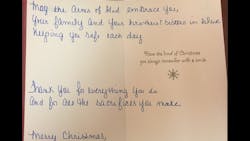 May the Arms of God embrace you,
Your family and your brothers/sisters in blue
keeping you safe each day
Have the kind of Christmas
you always remember with a smile.
Thank you for everything you do
And for all the sacrifices you make.
Merry Christmas,